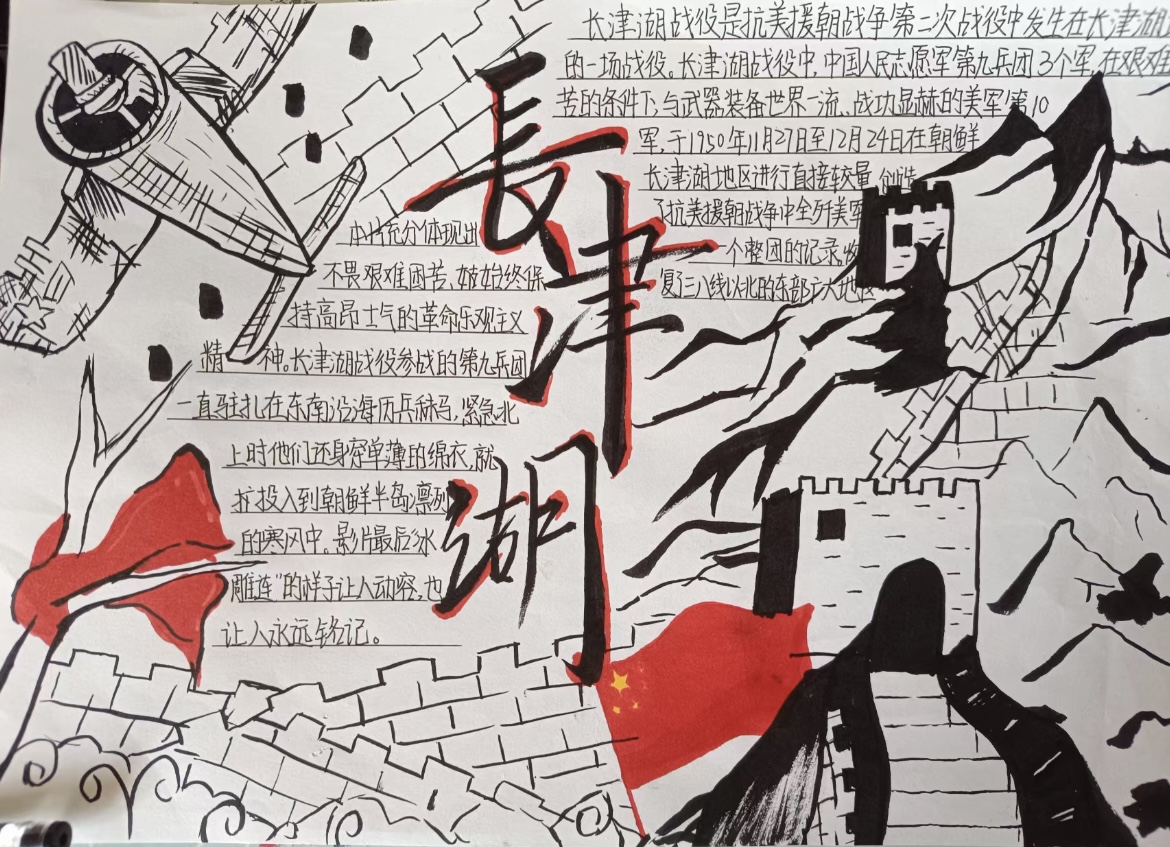 長津湖
长津湖战役是抗美援朝战争第二次战役中发生在长津湖
的一场战役。长津湖战役中,中国人民志愿军第九兵团3个军,在艰难
苦的条件下,与武器装备世界一流、战功显赫的美军第10
军,于1950年11月27日至12月24日在朝鲜
长津湖地区进行直接较量,创造
了抗美援朝战争中全歼美军
一个整团的记录,收
复了三八线以北的东部广大地
本片充分体现出
不畏艰难困苦、始终保
持高昂士气的革命乐观主义
精神。长津湖战役参战的第九兵团
一直驻扎在东南沿海历兵秣马,紧急北
上时他们还身穿单薄的绵衣,就
投入到朝鲜半岛凛冽
的寒风中。影片最后“冰
雕连”的样子让人动容,也
让人永远铭记。